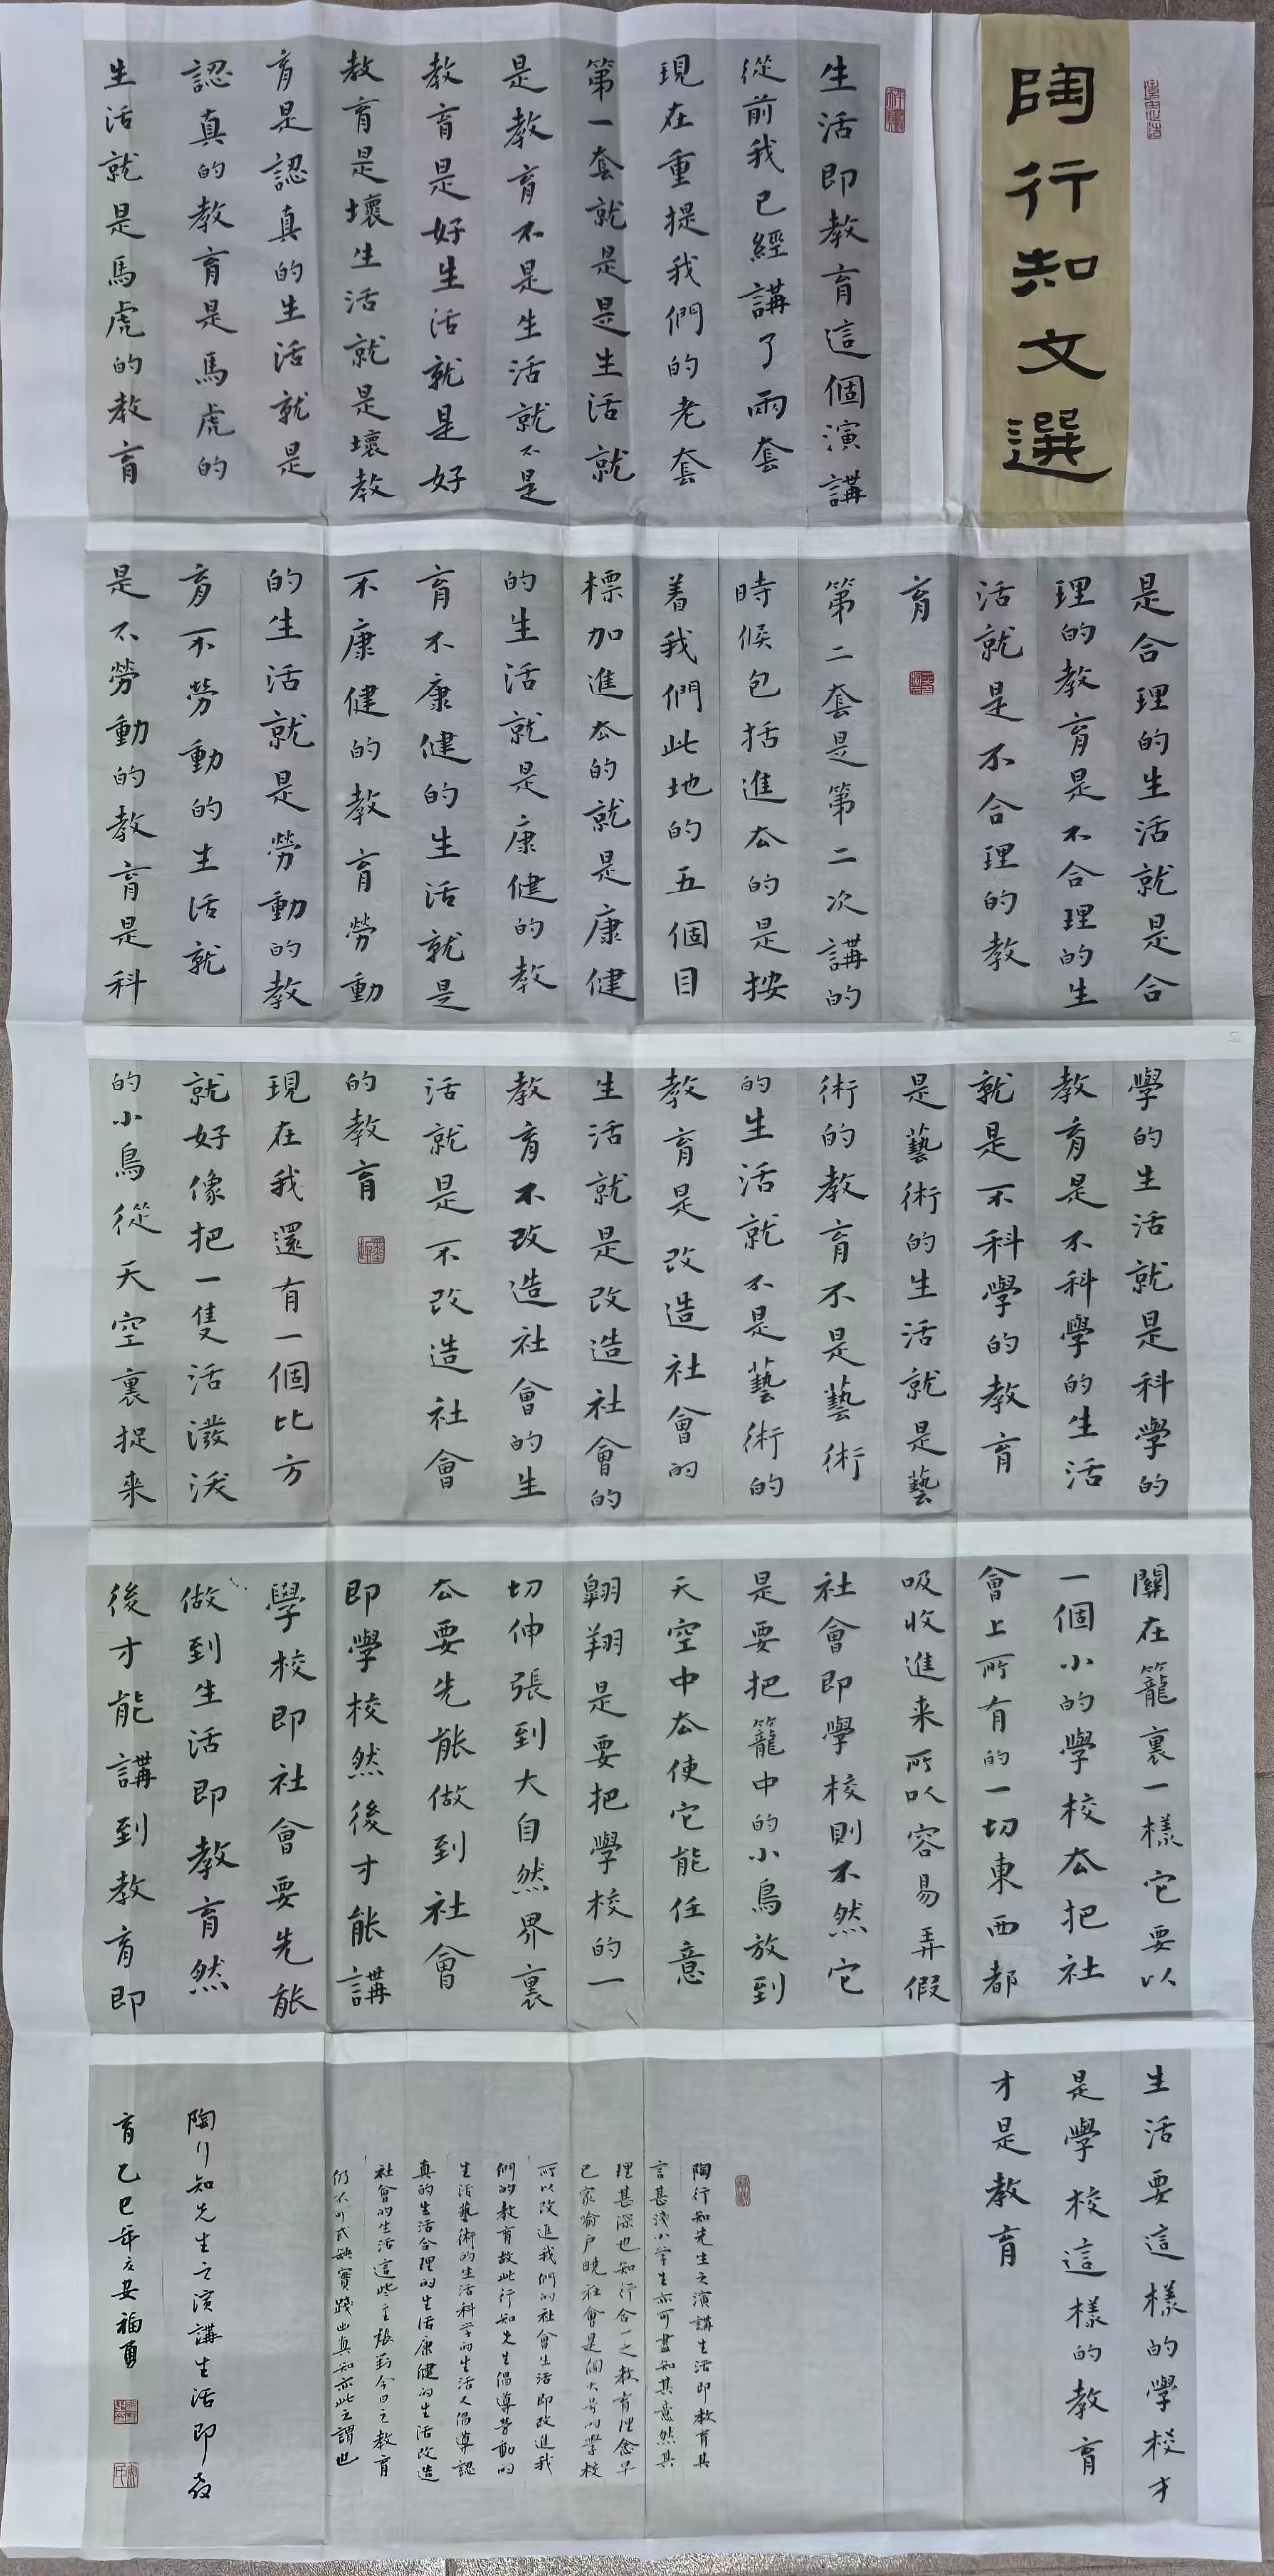 陶行知文選
生活即教育這個演講
從前我已經講了兩套
現在重提我們的老套
第一套就是是生活就
是教育不是生活就不是
教育是好生活就是好
教育是壞生活就是壞教
育是認真的生活就是
認真的教育是馬虎的
生活就是馬虎的教育
是合理的生活就是合
理的教育是不合理的生
活就是不合理的教
育
第二套是第二次講的
時候包括進厺的是按
着我們此地的五個目
標加進厺的就是康健
的生活就是康健的教
育不康健的生活就是
不康健的教育勞動
的生活就是勞動的教
育不勞動的生活就
是不勞動的教育是科
學的生活就是科學的
教育是不科學的生活
就是不科學的教育
是藝術的生活就是藝
術的教育不是藝術
的生活就不是藝術的
教育是改造社會的
生活就是改造社會的
教育不改造社會的生
活就是不改造社會
的教育
現在我還有一個比方
就好像把一隻活潑潑
的小鳥從天空裏捉來
關在籠裏一樣它要以
一個小的學校厺把社
會上所有的一切東西都
吸收進来所以容易弄假
社會即學校則不然它
是要把籠中的小鳥放到
天空中厺使它能任意
翱翔是要把學校的一
切伸張到大自然界裏
厺要先能做到社會
即學校然後才能講
學校即社會要先能
做到生活即教育然
後才能講到教育即
生活要這樣的學校才
是學校這樣的教育
才是教育
陶行知先生之演講生活即教育其
言甚淺小學生亦可盡知其意然其
理甚深也知行合一之教育理念早
已家喻戶曉社會是個大号的學校
所以改進我們的社會生活即改進我
們的教育故此行知先生倡導勞動的
生活藝術的生活科学的生活人倡導認
真的生活合理的生活康健的生活改造
社會的生活這些主張對今日之教育
仍不可或缺實踐出真知亦此之謂也
陶行知先生之演講生活即教
育乙巳年友安福勇